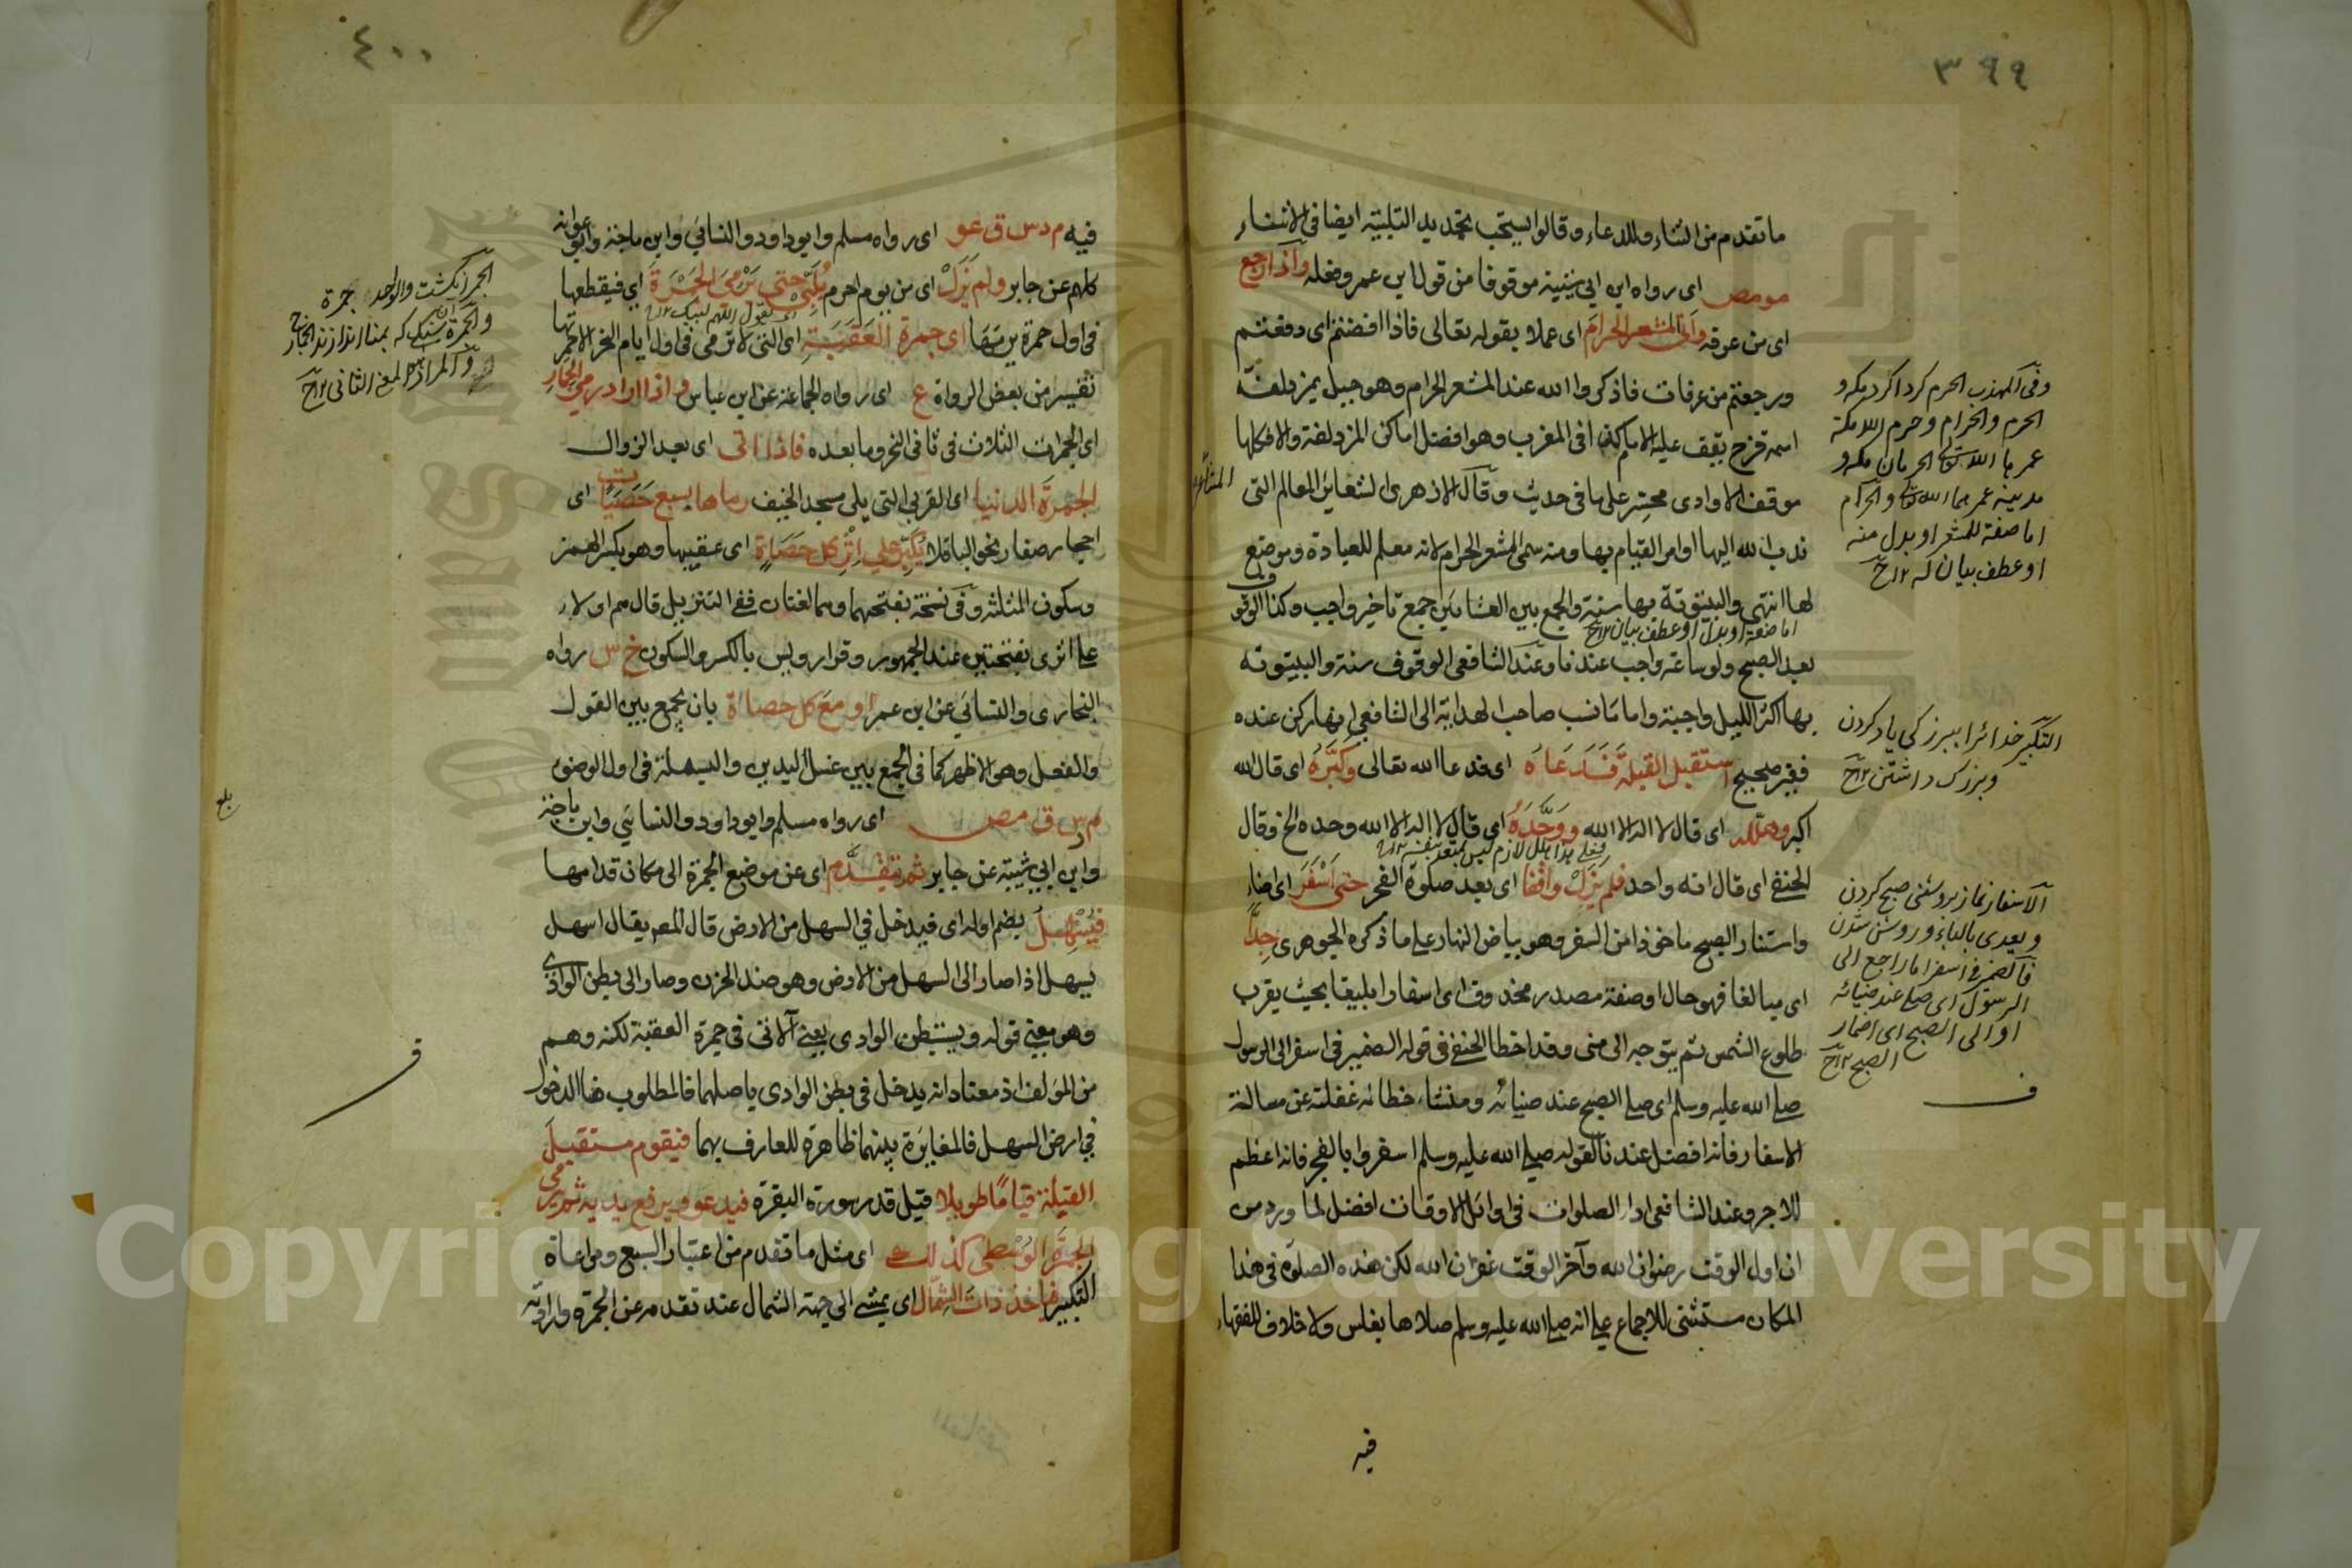 ٣٩٩
ما تقدم من الثناء والدعاء وقالوا يستحب تجديد التلبية ايضا في الاثناء
مو مص اى رواه ابن ابي شيبة موقوفا من قول ابن عمر وفعله واذا رجع
اى من عرفة واتى المشعر الحرام اى عملا بقوله تعالى فاذا افضتم اى دفعتم
ورجعتم من عرفات فاذكروا الله عند المشعر الحرام وهو جبيل بمزدلفة
اسمه قزح يقف عليه الامام كذا فى المغرب وهو افضل اماكن المزدلفة والا فكلها
موقف الا وادى محسر على ما فى حديث وقال الازهرى الشعائر المعالم التى
ندب الله اليها او امر القيام بها ومنه سمى المشعر الحرام لانه معلم للعبادة وموضع
لها انتهى والبيتوتة بها سنة والجمع بين العشائين جمع تاخير واجب وكذا الوقوف
اما صفة او بدل او عطف بيان
بعد الصبح ولو ساعة واجب عندنا وعند الشافعى الوقوف سنة والبيتوتة
بها اكثر الليل واجبة واما ما نسب صاحب الهداية الى الشافعى انها ركن عنده
فغير صحيح استقبل القبلة فدعاه اى فدعا الله تعالى وكبره اى قال الله
اكبر وهلله اى قال لا اله الا الله ووحده اى قال لا اله الا الله وحده الخ وقال
الحنفى اى قال انه واحد فلم يزل واقفا اى بعد صلوة الفجر حتى اسفر اى اضاء
واستنار الصبح ماخوذا من السفر وهو بياض النهار على ما ذكره الجوهرى جدا
اى مبالغا فهو حال او صفة مصدر محذوف اى اسفارا بليغا بحيث يقرب
طلوع الشمس ثم يتوجه الى منى وقد اخطا الحنفى فى قوله الضمير فى اسفر الى الرسول
صلى الله عليه وسلم اى صلى الصبح عند ضيائه ومنشاء خطائه غفلته عن مسالة
الاسفار فانه افضل عندنا لقوله صلى الله عليه وسلم اسفروا بالفجر فانه اعظم
للاجر وعند الشافعى اداء الصلوات فى اوائل الاوقات افضل لما ورد من
ان اول الوقت رضوان الله وآخر الوقت غفران الله لكن هذه الصلوة فى هذا
المكان مستثنى للاجماع على انه صلى الله عليه وسلم صلاها بغلس ولا خلاف للفقهاء
فيه
الحرم والحرام وحرم الله مكة
اما صفة للمشعر او بدل منه
او عطف بيان له
التكبير خدائرا ببزركى ياد كردن
وبزرك داشتن
الاسفار نماز بروشنى صبح كردن
ويعدى بالباء وروشن شدن
فالضمير فى اسفر اما راجع الى
الرسول اى صلى عند ضيائه
او الى الصبح اى اضاء
الصبح
ف
٤٠٠
فيه م د س ق عو اى رواه مسلم وابو داود والنسائى وابن ماجة وابو عوانة
كلهم عن جابر ولم يزل اى من يوم احرم يلبى حتى يرمى الجمرة اى فيقطعها
اى يقول اللهم لبيك
فى اول جمرة يرميها اى جمرة العقبة اى التى لا ترمى فى اول ايام النحر الا جمرتها
تفسير من بعض الرواة ع اى رواه الجماعة عن ابن عباس واذا اراد رمى الجمار
اى الجمرات الثلاث فى ثانى النحر وما بعده فاذا اتى اى بعد الزوال
الجمرة الدنيا اى القربى التى يلى مسجد الخيف رماها بسبع حصيات اى
احجار صغار نحو الباقلا يكبر على اثر كل حصاة اى عقيبها وهو بكسر الهمز
وسكون المثلثة وفى نسخة بفتحهما وهما لغتان ففى التنزيل قال هم اولاء
على اثرى بفتحتين عند الجمهور وقرا رويس بالكسر والسكون خ س رواه
البخارى والنسائى عن ابن عمر او مع كل حصاة بان يجمع بين القول
والفعل وهو الاظهر كما فى الجمع بين غسل اليدين والبسملة فى اول الوضوء
م د س ق مص اى رواه مسلم وابو داود والنسائى وابن ماجة
وابن ابى شيبة عن جابر ثم تقدم اى عن موضع الجمرة الى مكان قدامها
فيسهل بضم اوله اى فيدخل فى السهل من الارض قال المص يقال اسهل
يسهل اذا صار الى السهل من الارض وهو ضد الحزن وصار الى بطن الوادى
وهو معنى قوله ويستبطن الوادى يعنى الآتى فى جمرة العقبة لكنه وهم
من المؤلف اذ معناه انه يدخل فى بطن الوادى باصلهما فالمطلوب هنا الدخول
فى ارض السهل فالمغايرة بينهما ظاهرة للعارف بهما فيقوم مستقبل
القبلة قياما طويلا قيل قدر سورة البقرة فيدعو ويرفع يديه ثم يرمى
الجمرة الوسطى كذلك اى مثل ما تقدم من اعتبار السبع ومراعاة
التكبير فياخذ ذات الشمال اى يمشى الى جهة الشمال عند تقدمه عن الجمرة
والواحد جمرة
بلغ
ف
Copyright © King Saud University